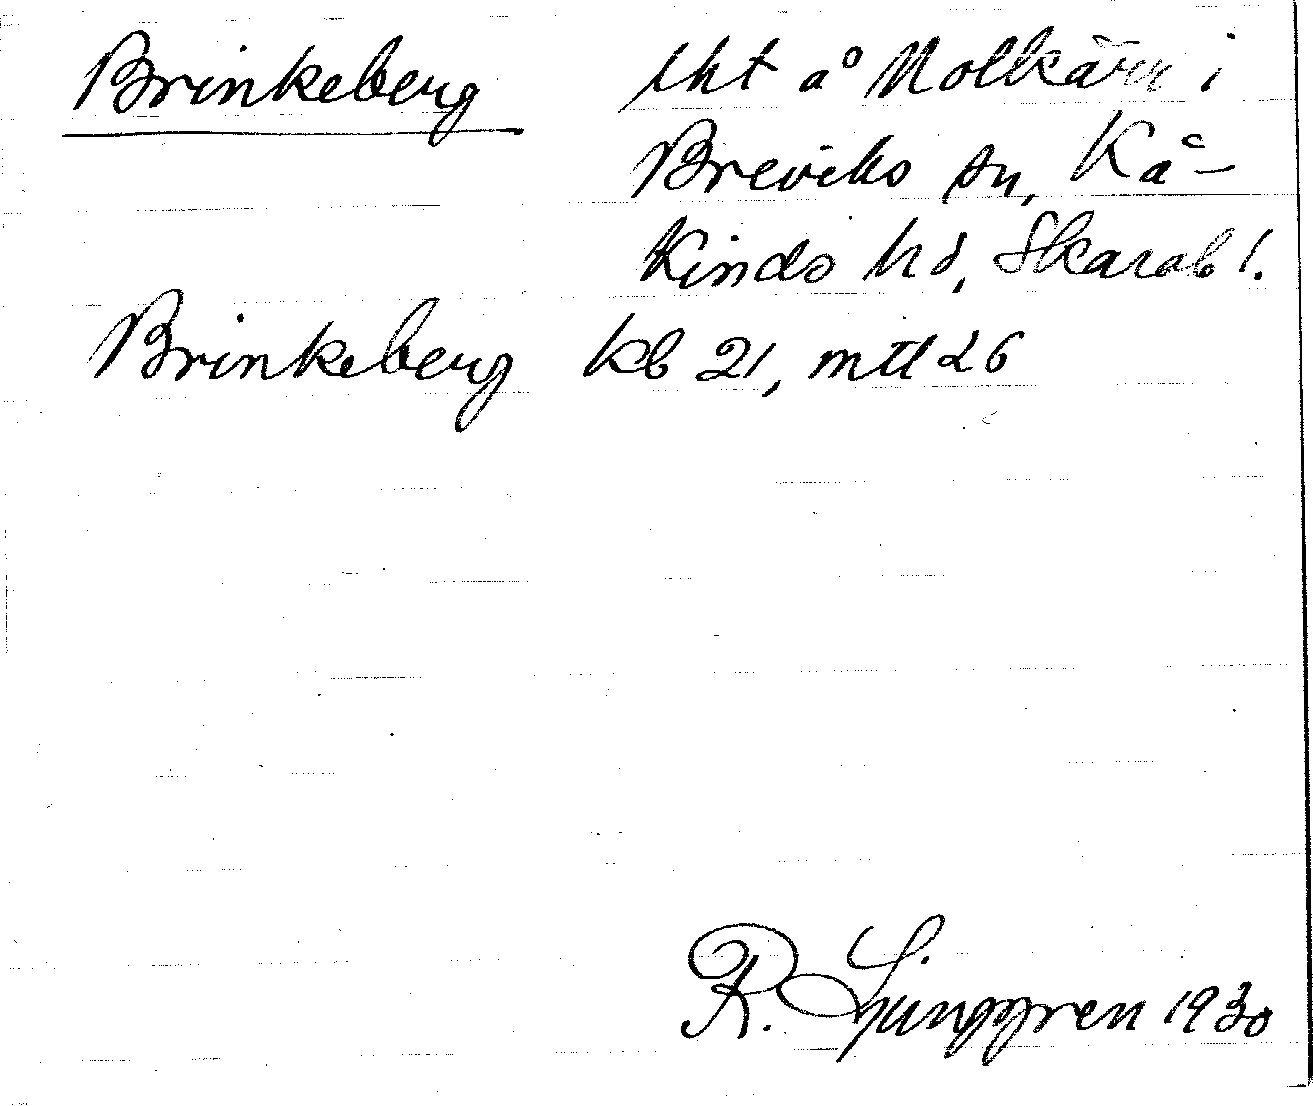 Brinkeberg tht å Molkärn i
Breviks sn, Kå-
kinds hd, Skarab l.
Brinkeberg kb 21, mtl 26
R. Ljunggren 1930